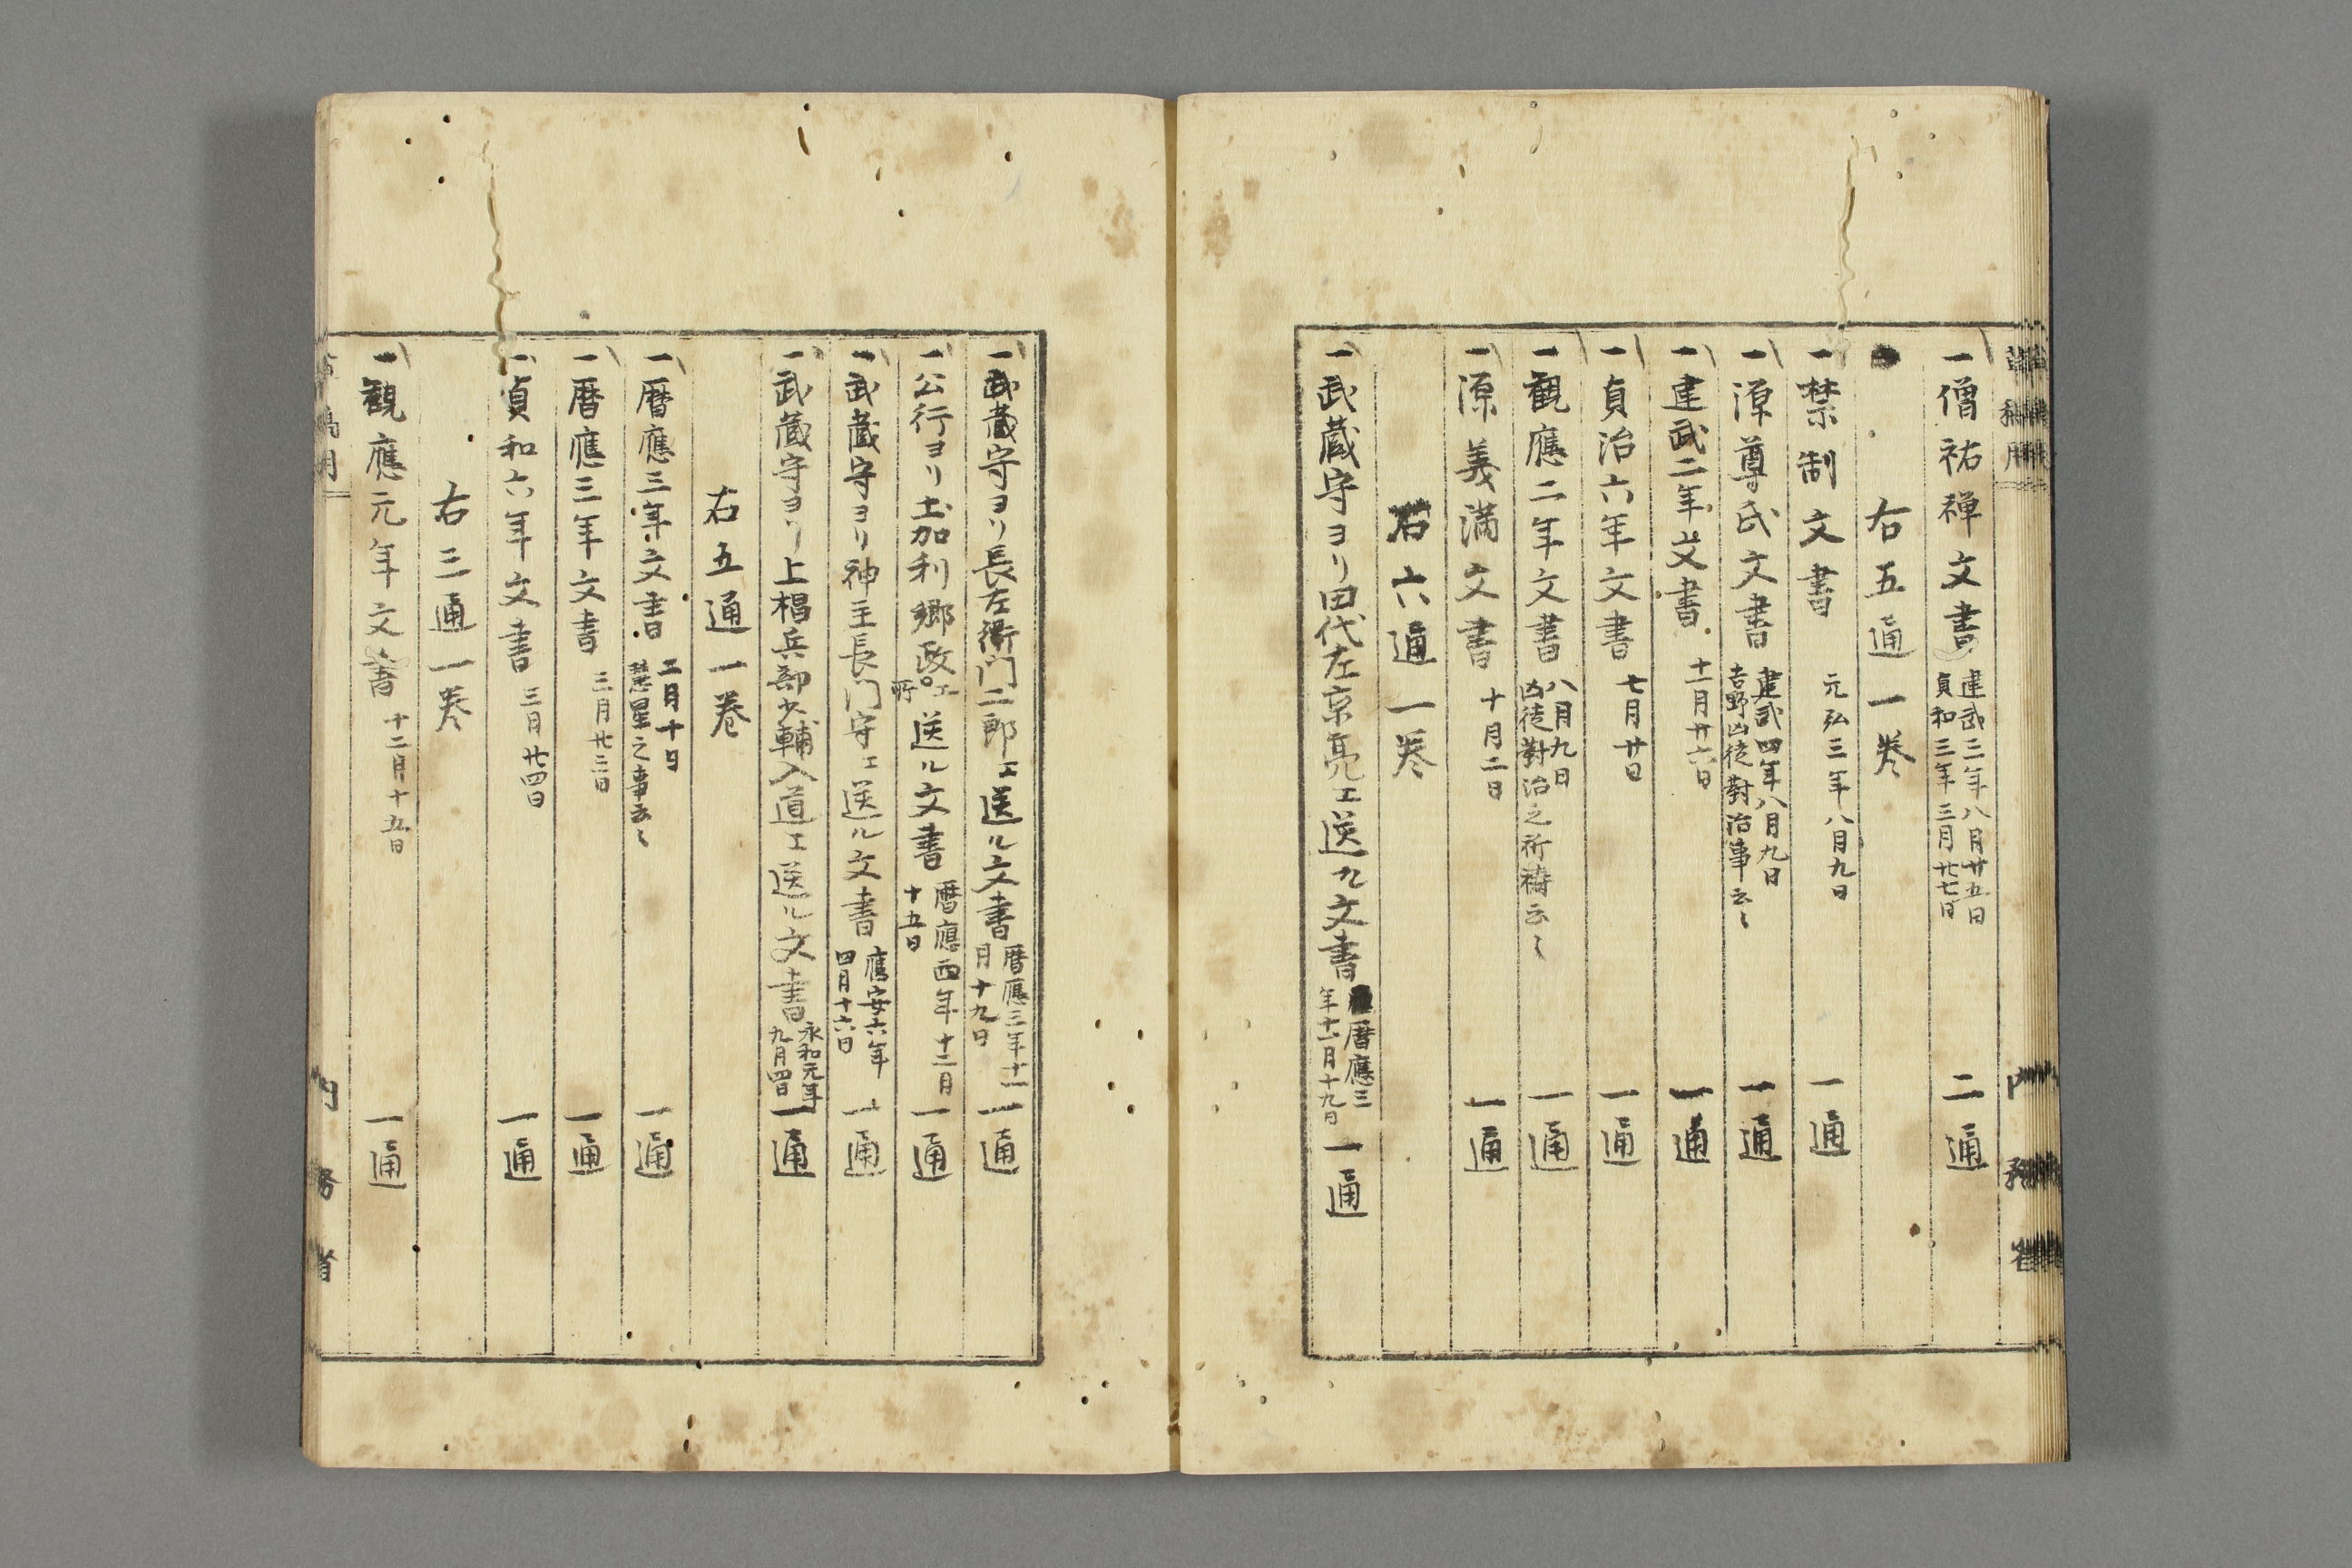 一僧祐禅文書 建武三年八月廿五日 貞和三年三月廿七日 二通
右五通一巻
一禁制文書 元弘三年八月九日 一通
一源尊氏文書 建武四年八月九日 吉野凶徒對治事云々 一通
一建武二年文書 十一月廿六日 一通
一貞治六年文書 七月廿日 一通
一観應二年文書 八月九日 凶徒對治之祈祷云々 一通
一源義満文書 十月二日 一通
右六通一巻
一武蔵守ヨリ田代左京亮エ送ル文書 暦應三年十一月十九日 一通
一武蔵守ヨリ長左衛門二郎エ送ル文書 暦應三年十一月十九日 一通
一公行ヨリ土加利郷政所エ送ル文書 暦應四年十二月十五日 一通
一武蔵守ヨリ神主長門守エ送ル文書 應安六年四月十六日 一通
一武蔵守ヨリ上椙兵部少輔入道エ送ル文書 永和元年九月四日 一通
右五通一巻
一暦應三年文書 二月十日 彗星之事云々 一通
一暦應三年文書 三月廿三日 一通
一貞和六年文書 三月廿四日 一通
右三通一巻
一観應元年文書 十二月十五日 一通
内務省